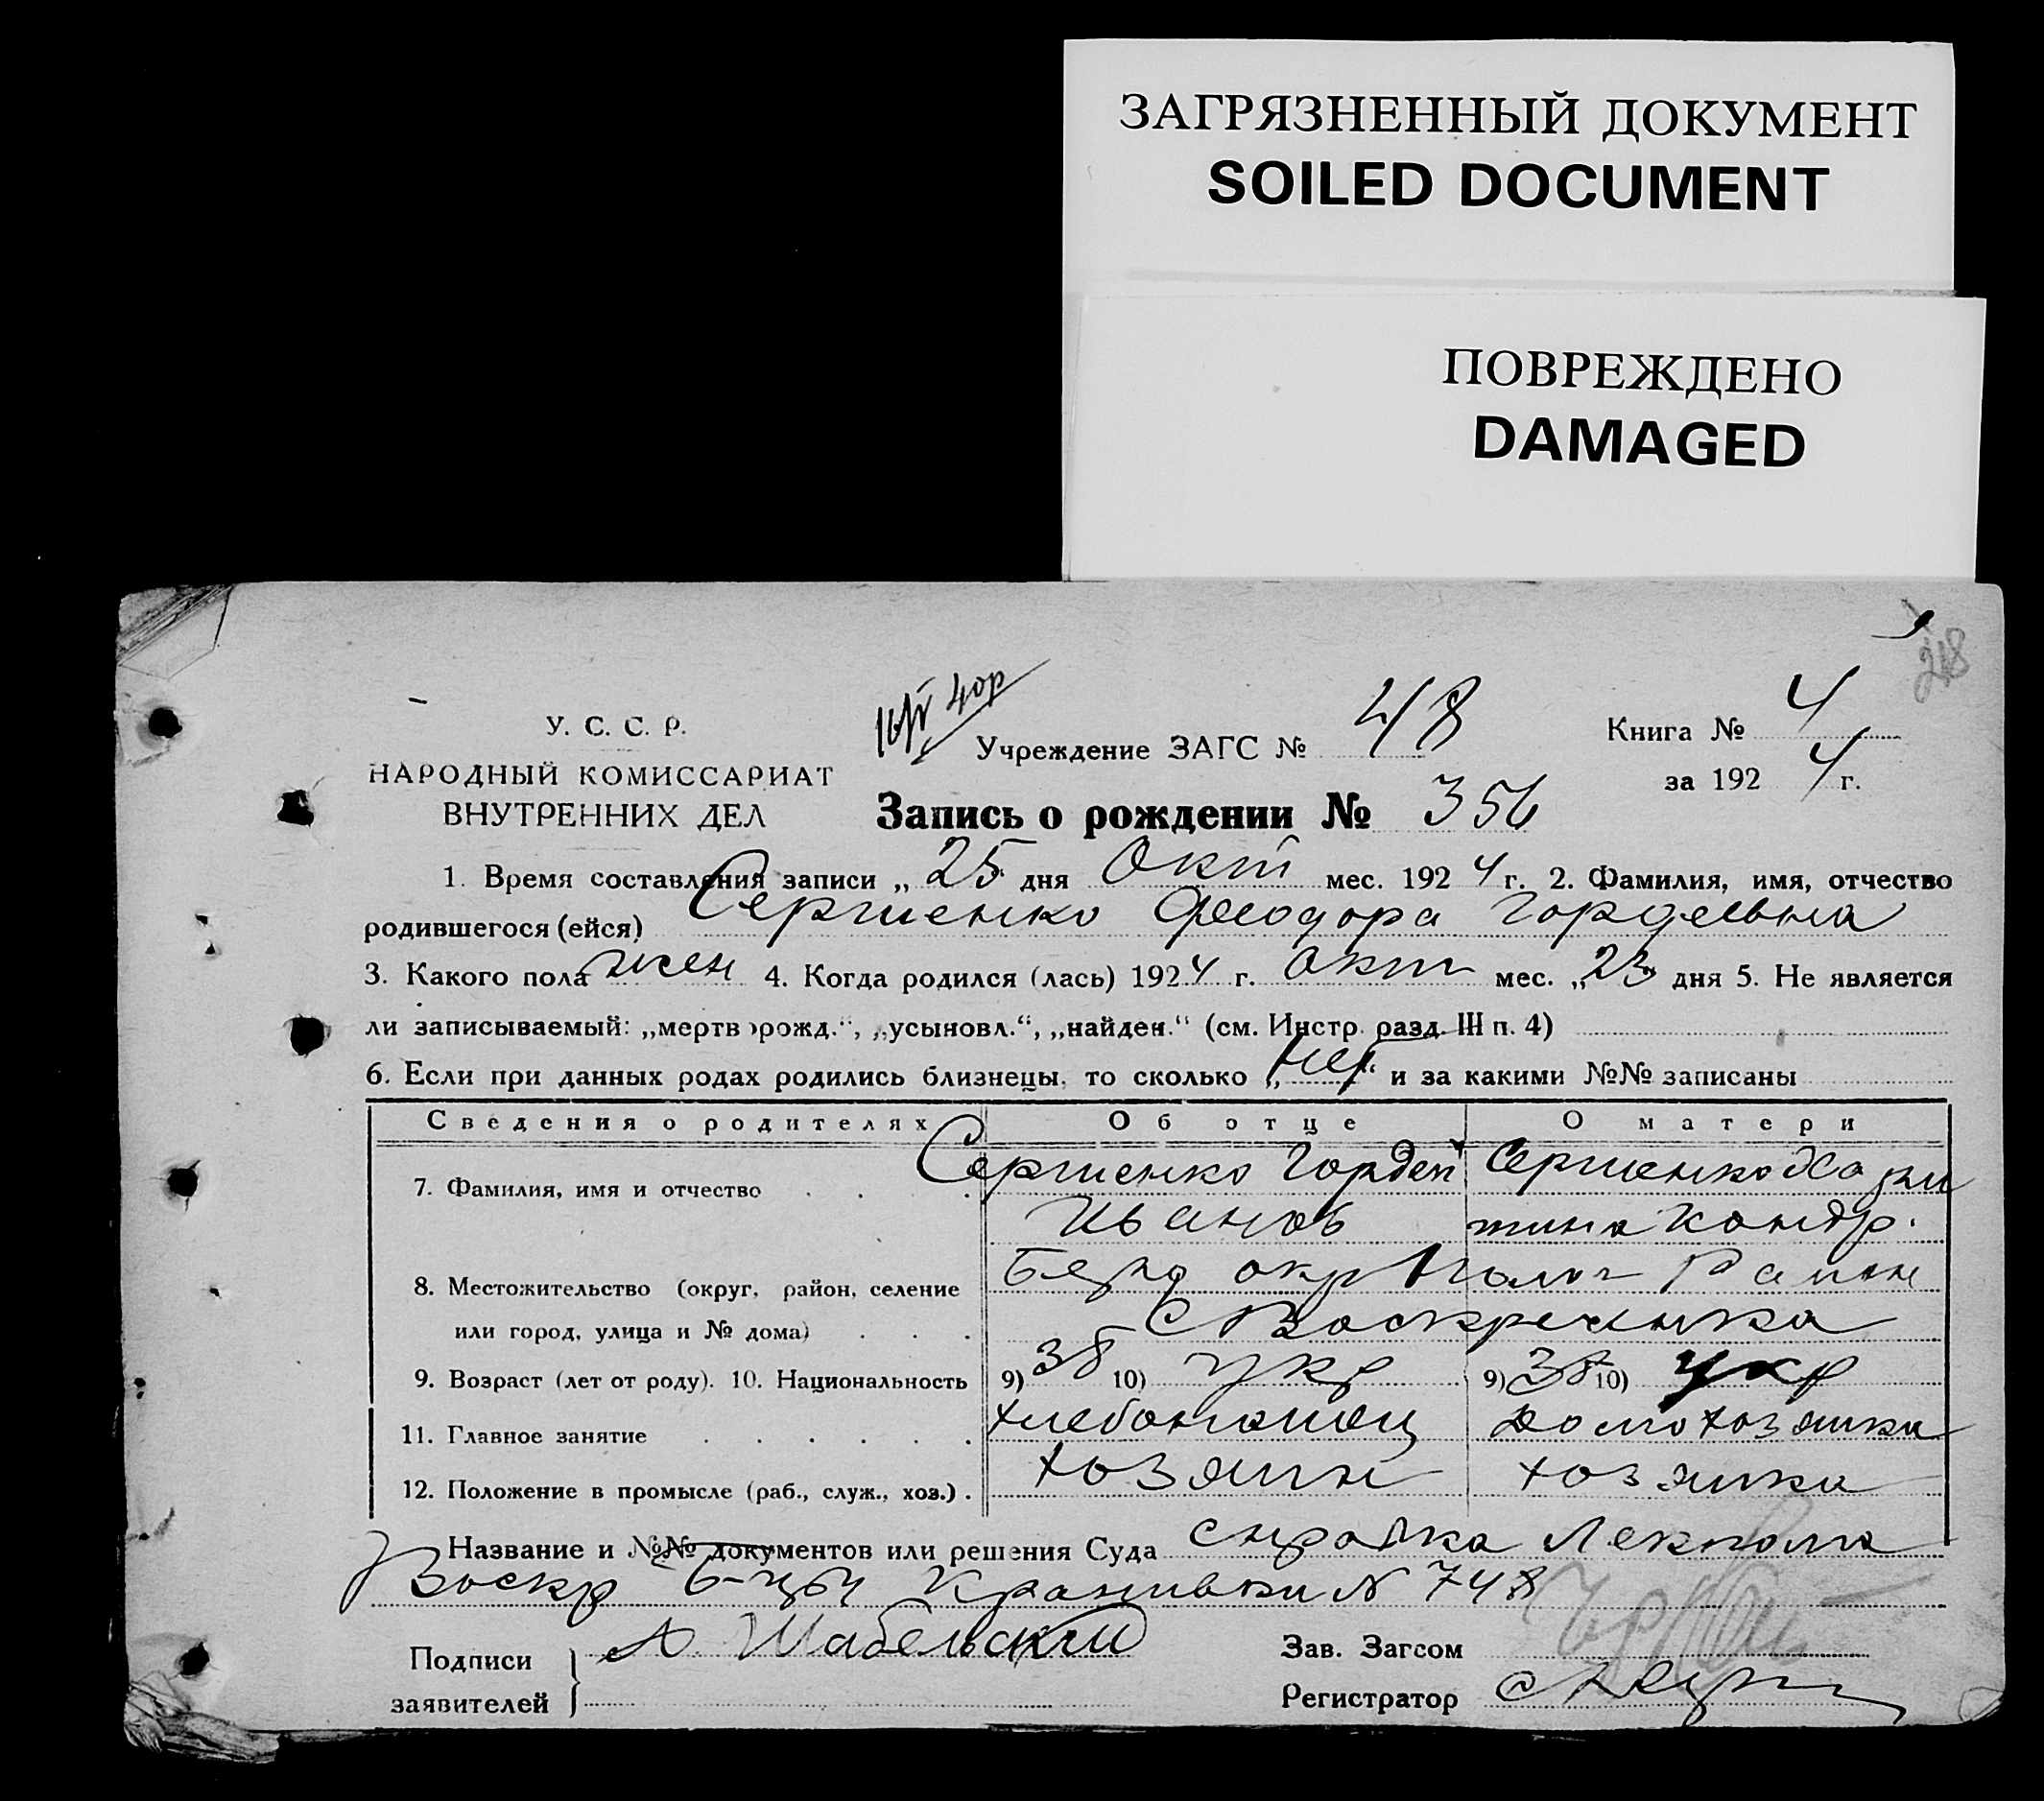 ЗАГРЯЗНЕННЫЙ ДОКУМЕНТ
SOILED DOCUMENT
ПОВРЕЖДЕНО
DAMAGED
218
У. С. С. Р.
НАРОДНЫЙ КОМИССАРИАТ
ВНУТРЕННИХ ДЕЛ
Учреждение ЗАГС № 48
Книга № 4
за 1924 г.
Запись о рождении № 356
1. Время составления записи „ 25 дня Окт мес. 1924 г. 2. Фамилия, имя, отчество
родившегося (ейся) Сергиенко Феодора Гордеевна
3. Какого пола жен 4. Когда родился (лась) 1924 г. Окт мес. „23„ дня 5. Не является
ли записываемый: „мертворожд.“, „усыновл.“, „найден.“ (см. Инстр. разд. III п. 4)
6. Если при данных родах родились близнецы, то сколько „нет“ и за какими №№ записаны
Сведения о родителях Об отце О матери
7. Фамилия, имя и отчество . . . Сергиенко Гордей Сергиенко Хари
Иванов тина Кондр.
8. Местожительство (округ, район, селение Бердр окр Полог Район
или город, улица и № дома) . . . с Воскресенка
9. Возраст (лет от роду). 10. Национальность 9) 38 10) укр 9) 38 10) укр
11. Главное занятие . . . . . . хлебопашец домохозяйка
12. Положение в промысле (раб., служ., хоз.) . хозяин хозяйка
Название и №№ документов или решения Суда справка Лекпома
Воскр б-цы N 748
Подписи заявителей А. Шабельский
Зав. Загсом
Регистратор